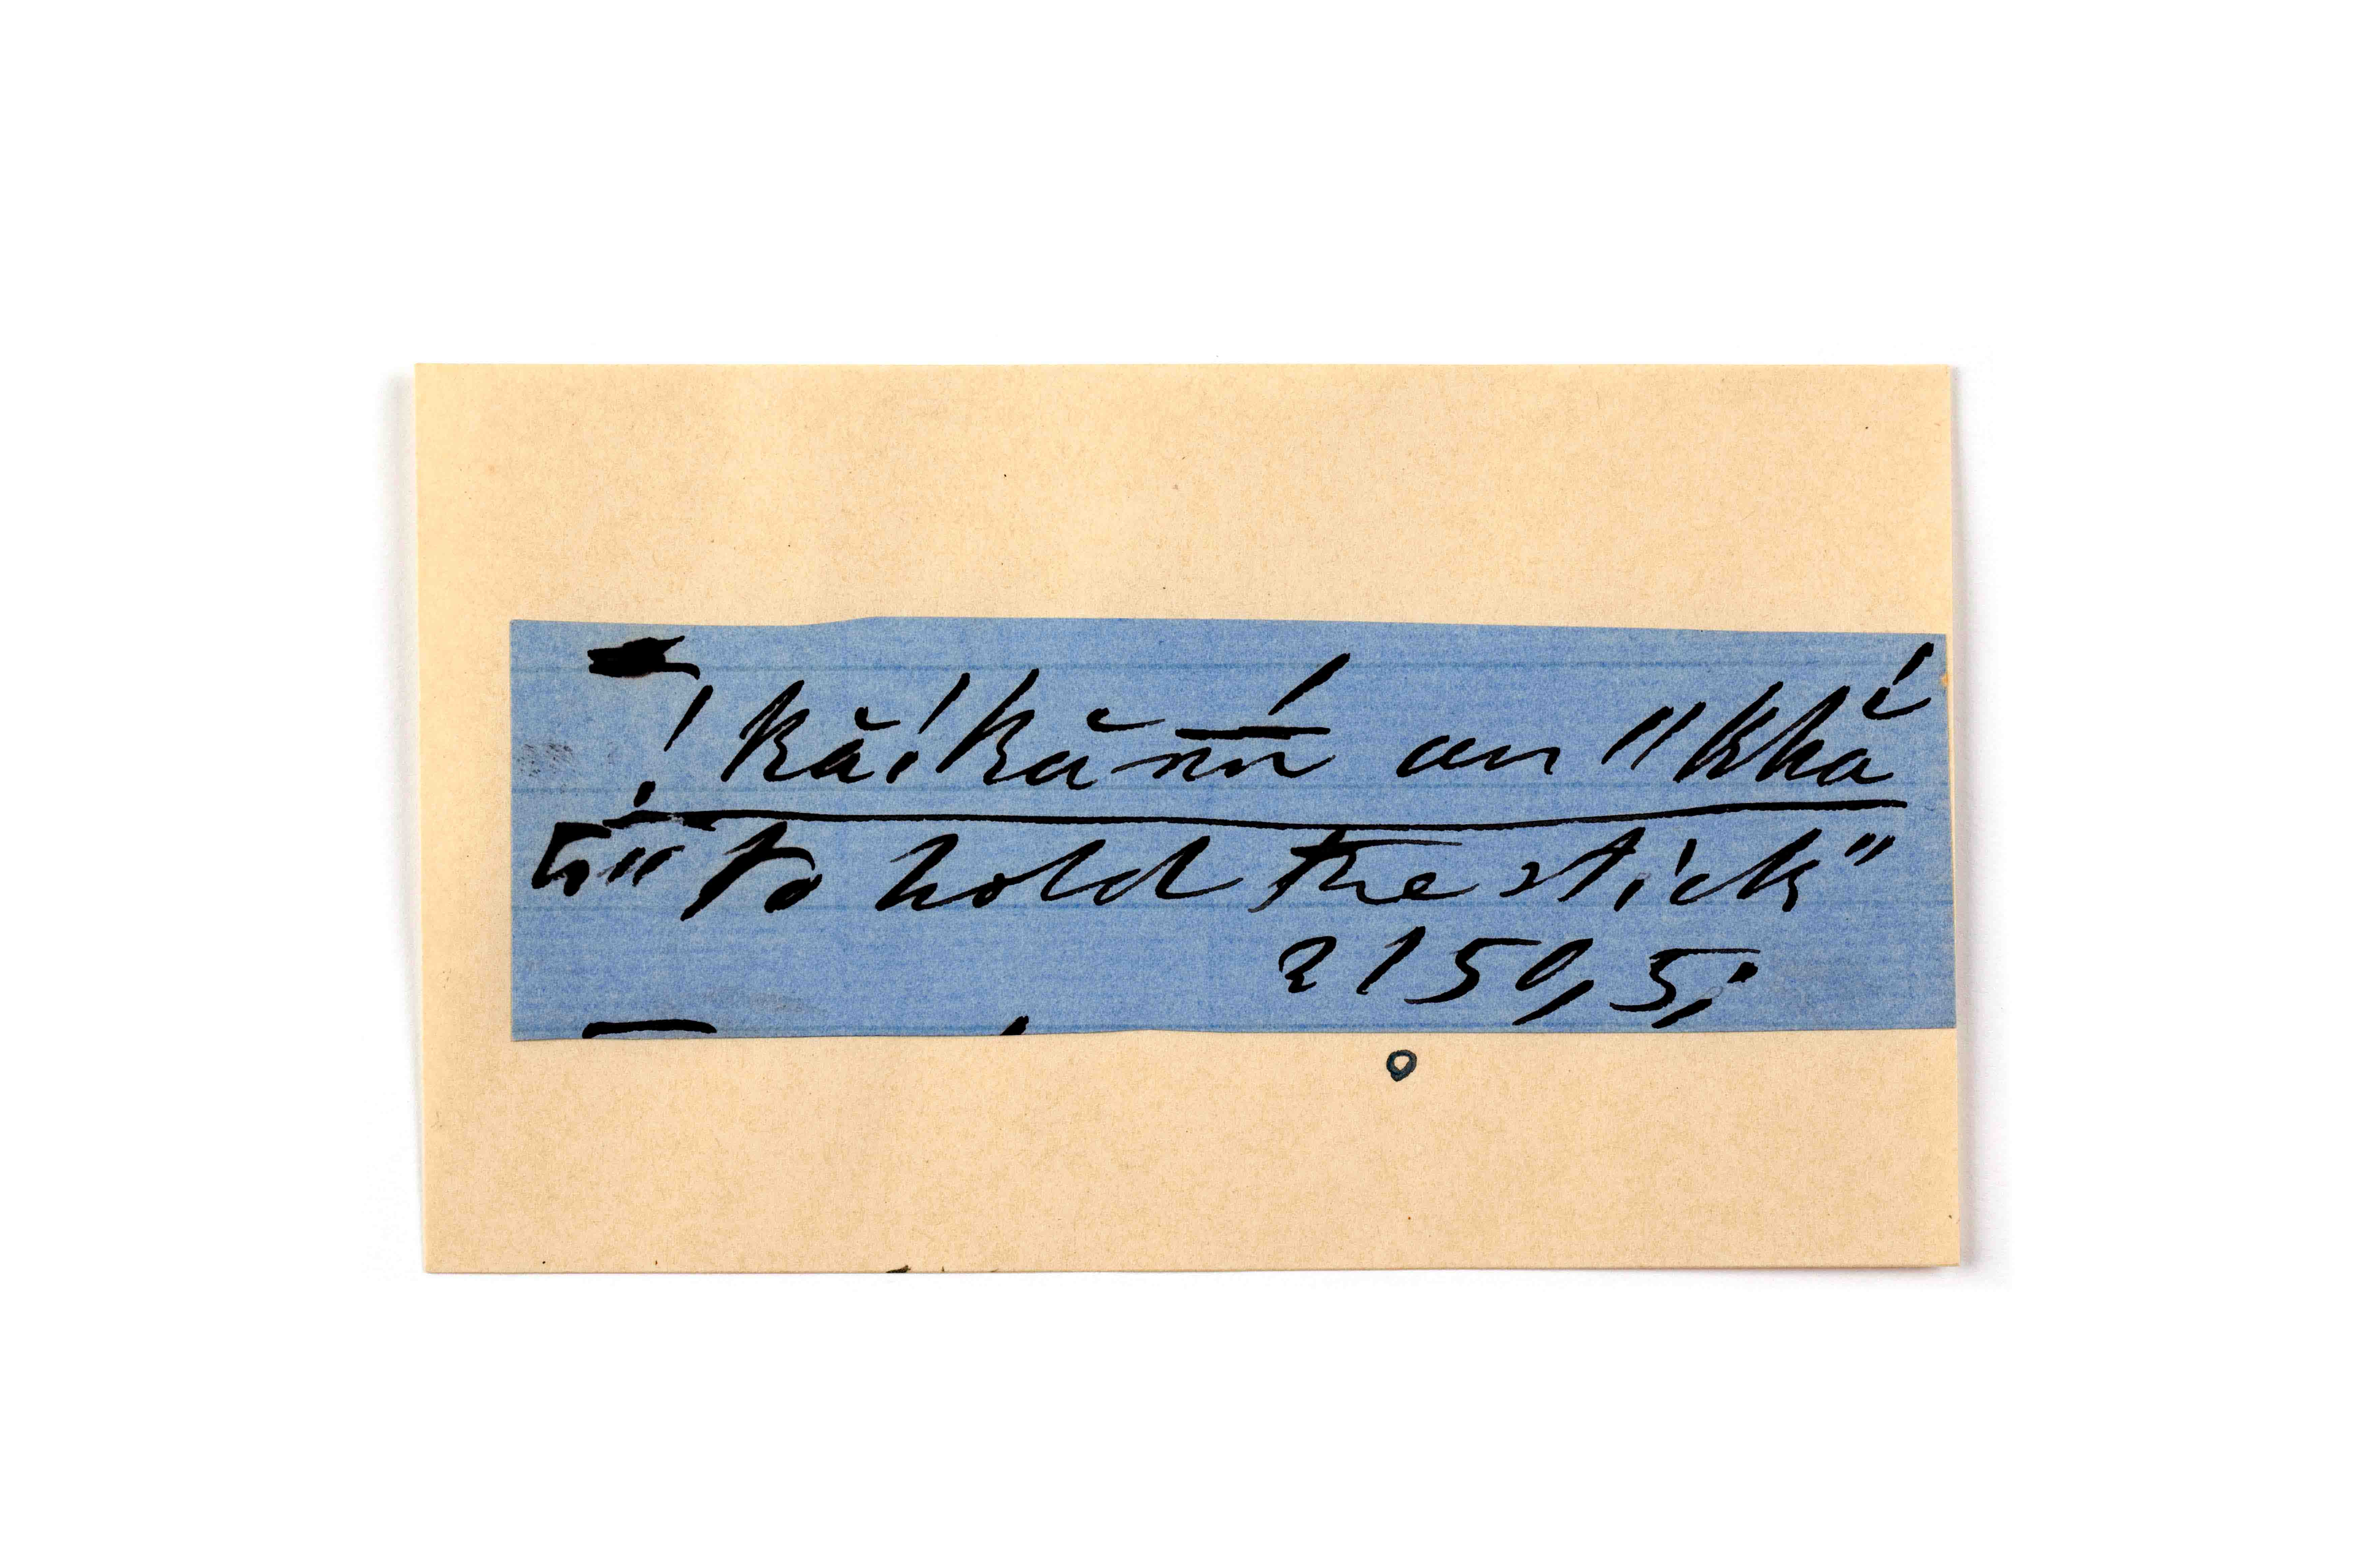 !kă!kă n̄n̄́ au ǁkhá
ti ǁ to hold the stick"
2159,5;